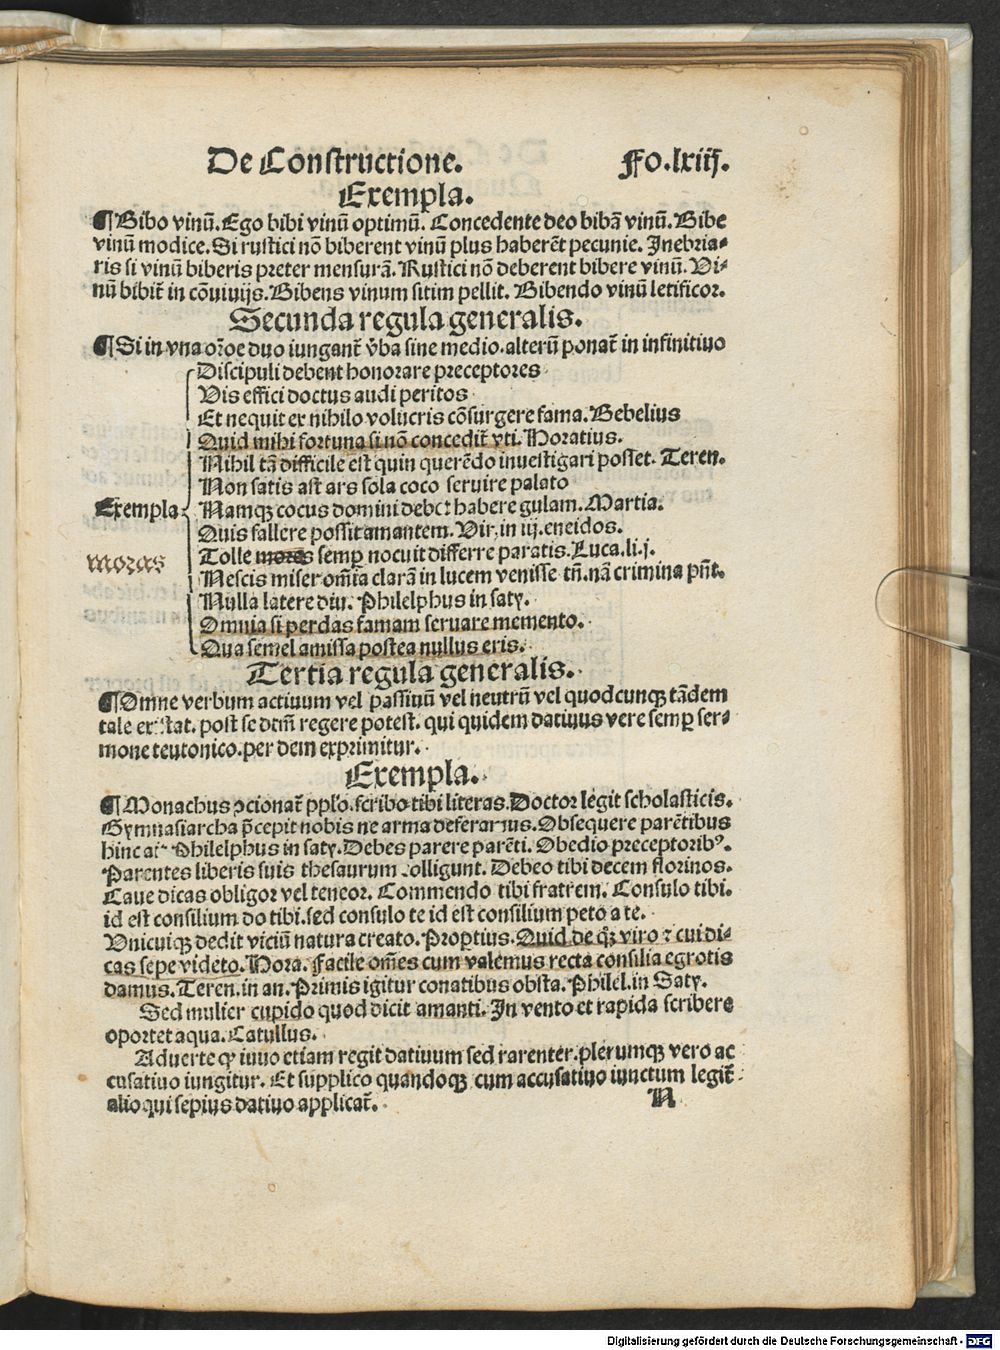 De Constructione. Fo. lxiij.
Exempla.
¶ Bibo vinū. Ego bibi vinū optimū. Concedente deo bibā vinū. Bibe
vinū modice. Si rustici nō biberent vinū plus haberēt pecunie. Inebria-
ris si vinū biberis preter mensurā. Rustici nō deberent bibere vinū. Vi-
nū bibit̄ in cōuiuijs. Bibens vinum sitim pellit. Bibendo vinū letificor.
Secunda regula generalis.
¶ Si in vna or̄oe duo iungant̄ v̄ba sine medio. alterū ponat̄ in infinitiuo
Discipuli debent honorare preceptores
Vis effici doctus audi peritos
Et nequit ex nihilo volucris cōsurgere fama. Bebelius
Quid mihi fortuna si nō concedit̄ vti. Horatius.
Nihil tā difficile est quin querēdo inuestigari posset. Teren.
Non satis ast ars sola coco seruire palato
Exempla Namqꝫ cocus domini debet habere gulam. Martia.
Quis fallere possit amantem. Vir. in iij. eneidos.
Tolle mores semꝑ nocuit differre paratis. Luca. li. j.
moras
Nescis miser om̄ia clarā in lucem venisse tn̄. nā crimina pn̄t.
Nulla latere diu. Philelphus in saty.
Omnia si perdas famam seruare memento.
Qua semel amissa postea nullus eris.
Tertia regula generalis.
¶ Omne verbum actiuum vel passiuū vel neutrū vel quodcunqꝫ tādem
tale existat. post se dtm̄ regere potest. qui quidem datiuus vere semꝑ ser-
mone teutonico. per dem exprimitur.
Exempla.
¶ Monachus ꝯcionat̄ pplo. scribo tibi literas. Doctor legit scholasticis.
Gymnasiarcha p̄cepit nobis ne arma deferamus. Obsequere parētibus
hinc Philelphus in saty. Debes parere parēti. Obedio preceptoribꝰ.
Parentes liberis suis thesaurum colligunt. Debeo tibi decem florinos.
Caue dicas obligor vel teneor. Commendo tibi fratrem. Consulo tibi.
id est consilium do tibi. sed consulo te id est consilium peto a te.
Vnicuiqꝫ dedit viciū natura creato. Proꝑtius. Quid de qꝫ viro ⁊ cui di-
cas sepe videto. Hora. Facile om̄es cum valemus recta consilia egrotis
damus. Teren. in an. Primis igitur conatibus obsta. Philel. in Saty.
Sed mulier cupido quod dicit amanti. In vento et rapida scribere
oportet aqua. Catullus.
Aduerte qꝫ iuuo etiam regit datiuum sed rarenter. plerumqꝫ vero ac
cusatiuo iungitur. Et supplico quandoqꝫ cum accusatiuo iunctum legit̄
alioqui sepius datiuo applicat̄.
N
Digitalisierung gefördert durch die Deutsche Forschungsgemeinschaft - DFG